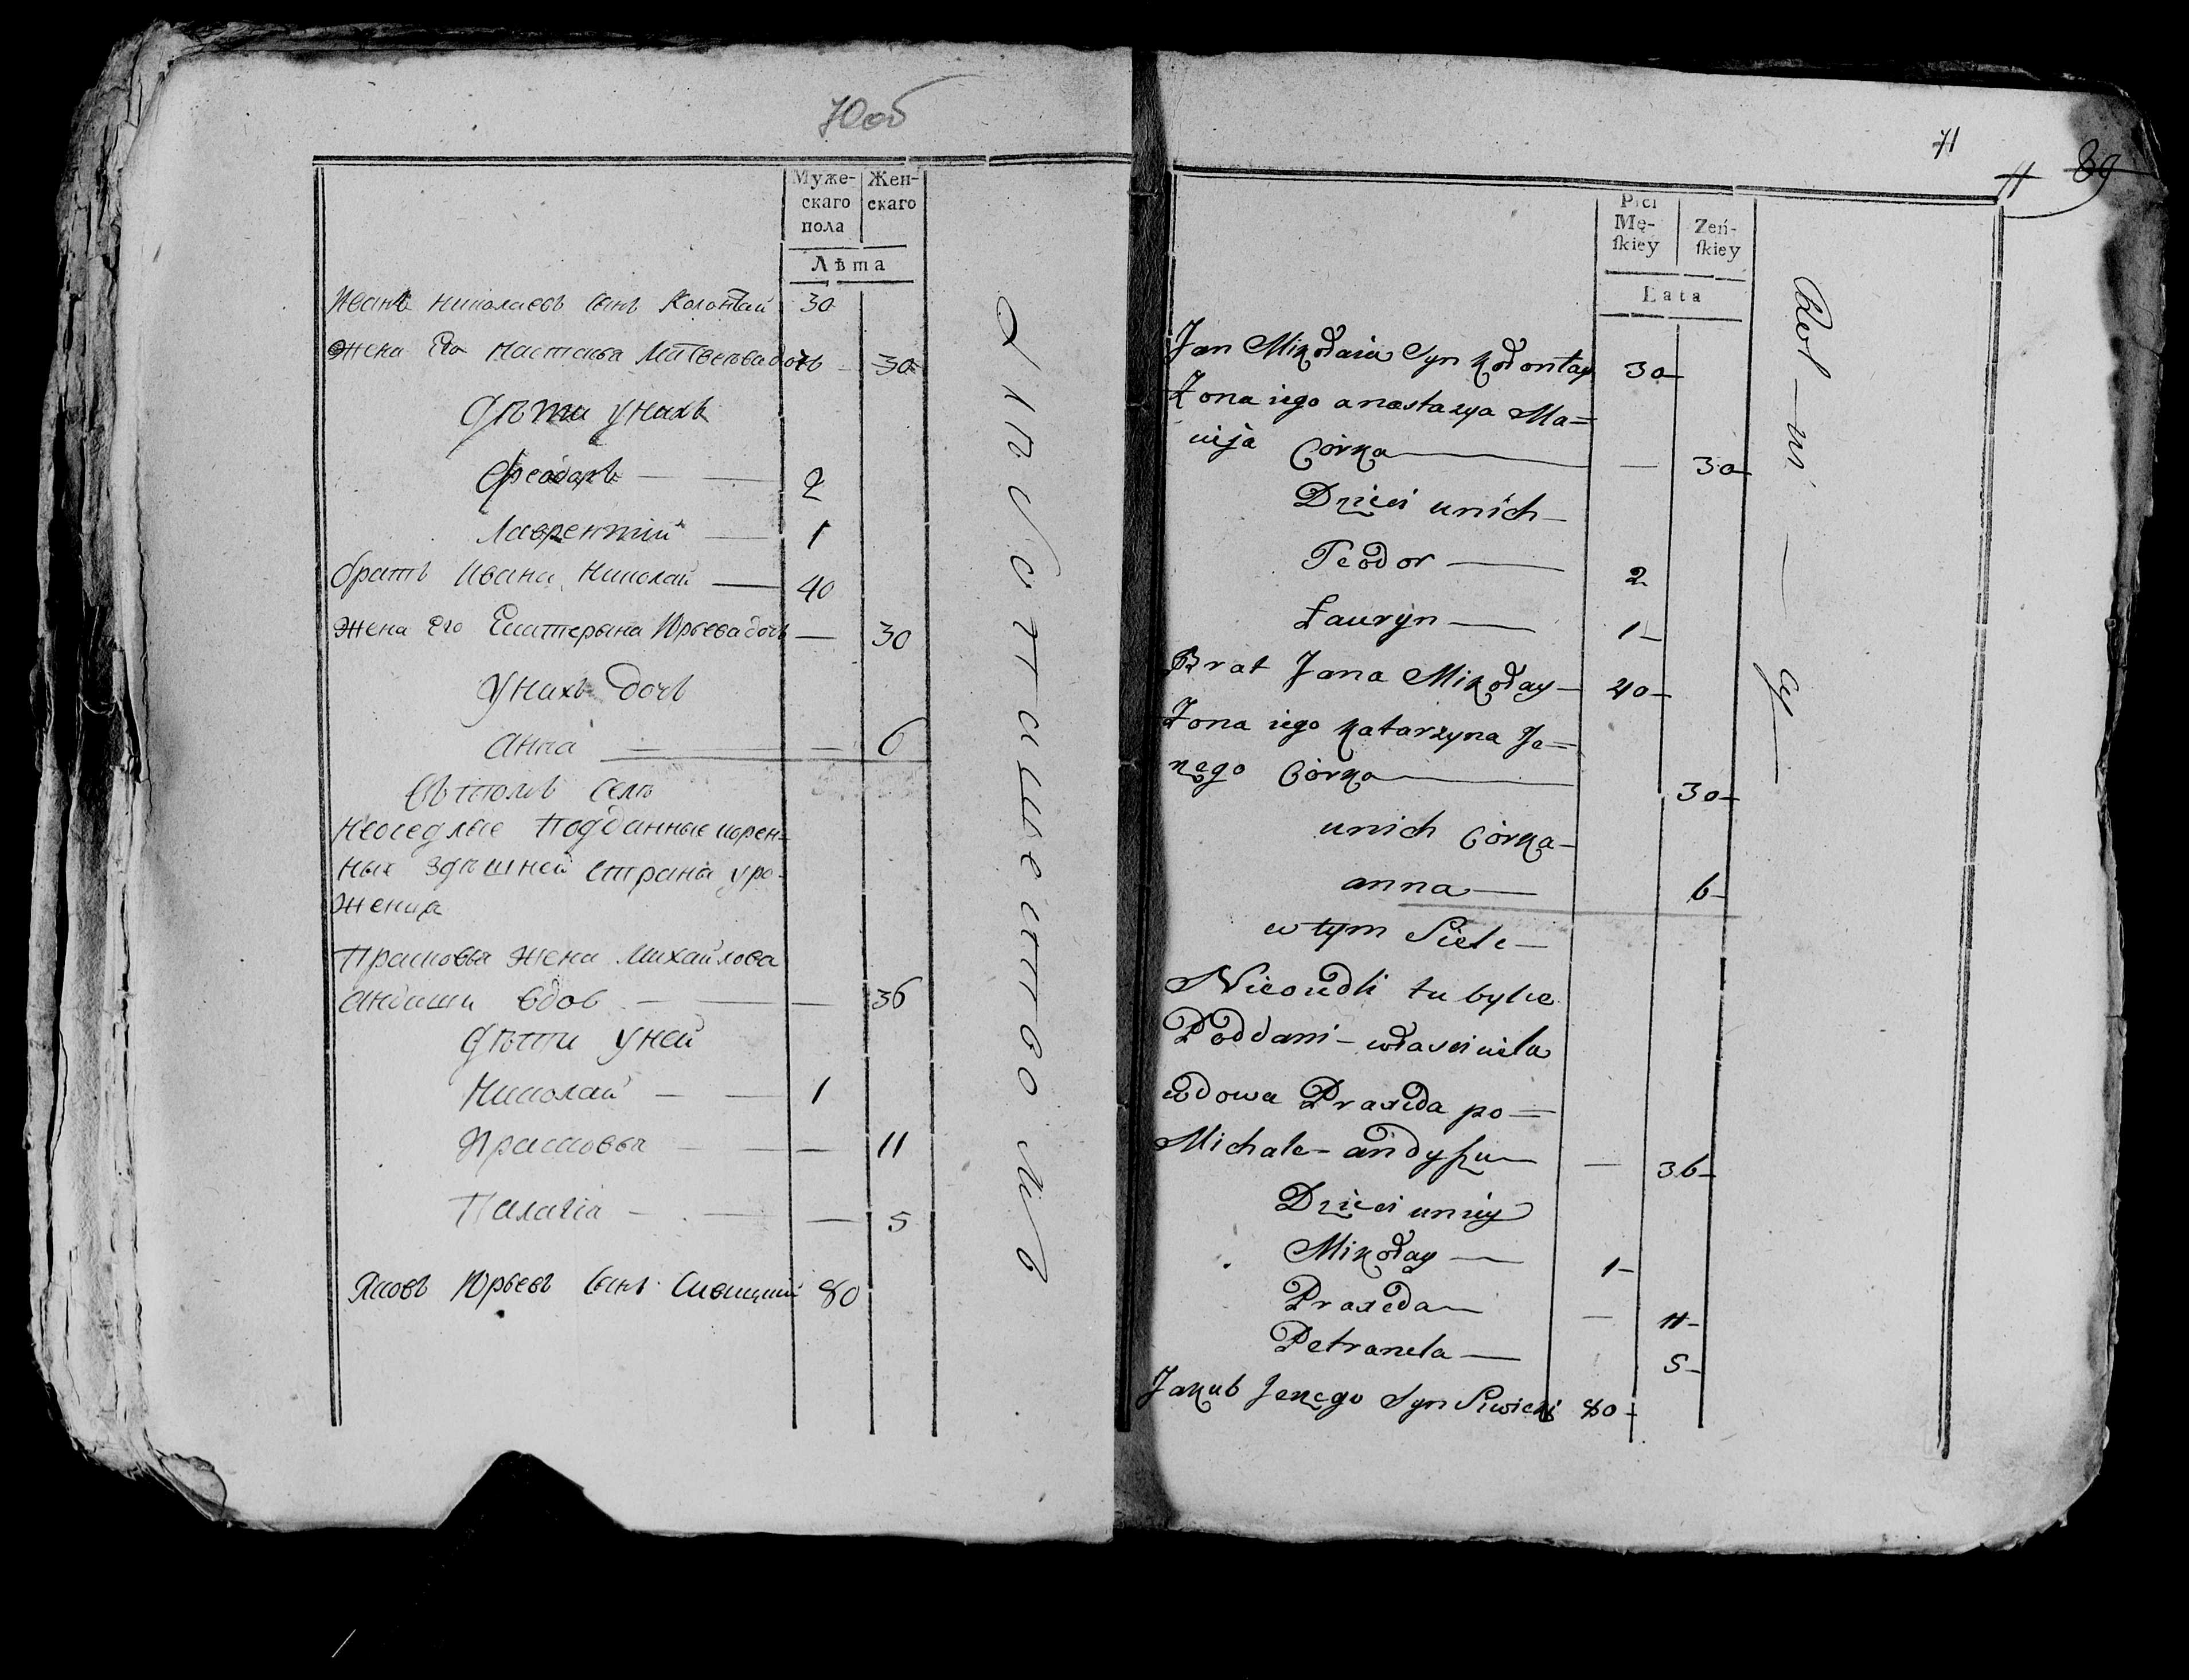 70об
Муже-
скаго
пола
Жен-
скаго
Лѣта
Иванъ Николаевъ сынъ Колонтай 30
Жена Его Настасья Матвеева дочь 30
Дѣти у нихъ
Феодоръ — 2
Лаврентій — 1
братъ Ивана Николай — 40
Жена Его Екатерына Юрьева дочь — 30
У нихъ дочь
Анна — 6
Въ томъ селѣ
Неоседлые Подданные корен-
ные здѣшней Страны уро-
женцы
Прасковья Жена Михайлова
вдов — 36
Дѣти у ней
Николай — 1
Прасковья — 11
Палагія — 5
Яковъ Юрьевъ сынъ Сивицкий 80
71
89
Płci
Mę-
ſkiey
Zeń-
ſkiey
Lata
Jan Mikołaia Syn Kołontay 30
Żona iego anastazya Ma=
cija Córka — 30
Dzieci unich
Teodor — 2
Łauryn — 1
Brat Jana Mikołay — 40
Żona iego Katarzyna Je=
rzego Córka — 30
unich Córka
anna — 6
w tym Siele
Nieosiedli tu bylce
Poddani
wdowa Praxeda po
Michale — 36
Dzieci uniey
Mikołay — 1
Praxeda — 11
Petranela — 5
Jakub Jerzego Syn Siwicki 80